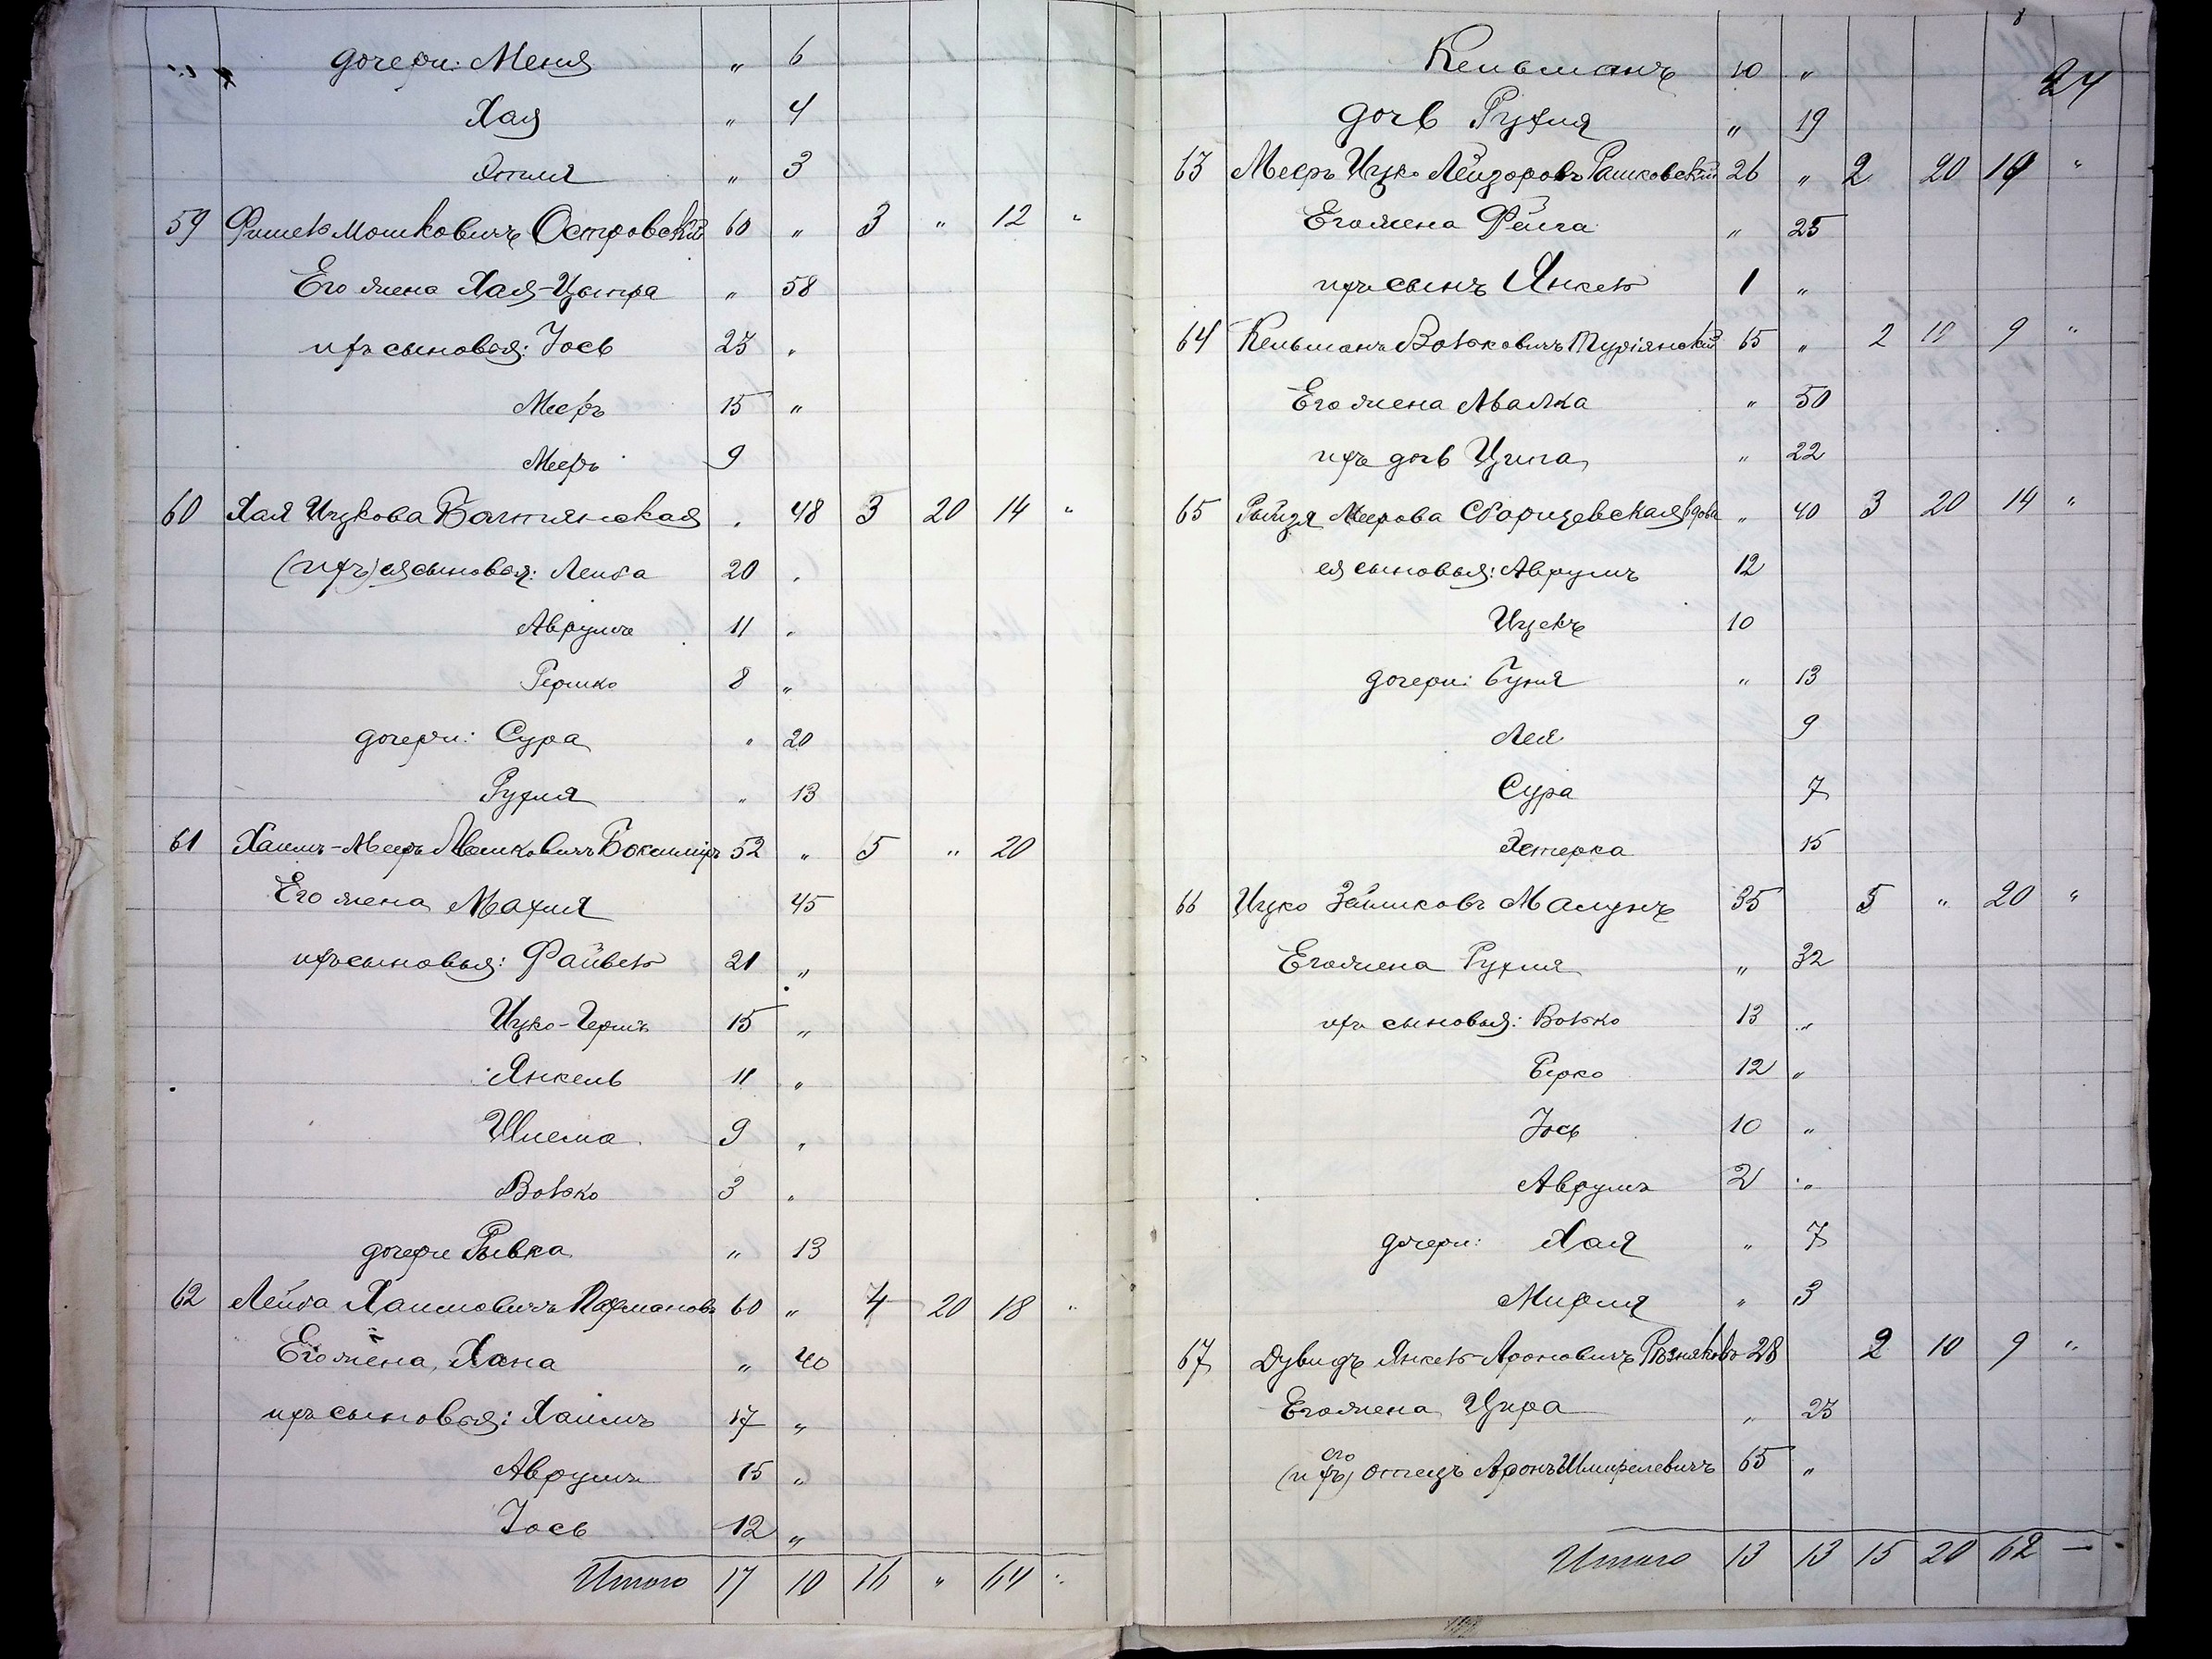 дочери: Меня " 6
Хая " 4
Этля " 3
59 Фишель Мошковичъ Островскій 60 " 3 " 12 "
Его жена Хая-Цытра " 58
ихъ сыновья: Іось 23 "
Мееръ 15 "
Мееръ 9
60 Хая Ицкова " 48 3 20 14 "
(ихъ) ея сыновья: Лейба 20 "
Аврумъ 11 "
Гершко 8 "
дочери: Сура " 20
Рухля " 13
61 Хаимъ-Мееръ Мошковичъ 52 " 5 " 20
Его жена Махля 45
ихъ сыновья: Файвель 21 "
Ицко-Гершъ 15 "
Янкель 11 "
Шлема 9 "
Волько 3 "
дочери Рывка " 13
62 Лейба Хаимовичъ 60 " 4 20 18 "
Его жена, Хана " 40
ихъ сыновья: Хаимъ 17 "
Аврумъ 15 "
Іось 12 "
Итого 17 10 16 " 64 "
24
Кельманъ 10 "
дочь Рухля " 19
63 Мееръ Ицко Лейзоровъ Рашковскій 26 " 2 20 "
Его жена Фейга " 25
ихъ сынъ Янкель 1 "
64 Кельманъ Вольковичъ Турiянскій 65 " 2 10 9 "
Его жена Малка " 50
ихъ дочь Ципа " 22
65 Рейзя Меерова вдова " 40 3 20 14 "
ея сыновья: Аврумъ 12
Ицекъ 10
дочери: Буня " 13
Лея 9
Сура 7
Эстерка 15
66 Ицко Маzунъ 35 5 " 20 "
Его жена Рухля " 32
ихъ сыновья: Волько 13 "
Берко 12 "
Іось 10 "
Аврумъ 2 "
дочери: Хая " 7
Мирля " 3
67 Дувидъ Янкель Ароновичъ Рѣзниковъ 28 2 10 9 "
Его жена Цира " 23
(ихъ) его отецъ Аронъ 65 "
Итого 13 13 15 20 62 —